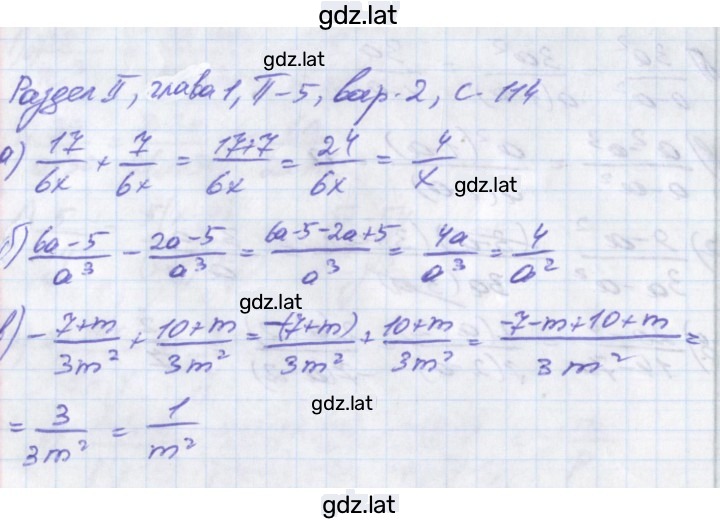 gdz.lat
gdz.lat
Раздел II, глава 1, П-5, вар. 2, с. 114
а) 17/6x + 7/6x = 17+7/6x = 24/6x = 4/x
gdz.lat
б) 6a-5/a³ - 2a-5/a³ = 6a-5-2a+5/a³ = 4a/a³ = 4/a²
gdz.lat
в) - 7+m/3m² + 10+m/3m² = -(7+m)/3m² + 10+m/3m² = -7-m+10+m/3m² =
= 3/3m² = 1/m²
gdz.lat
gdz.lat